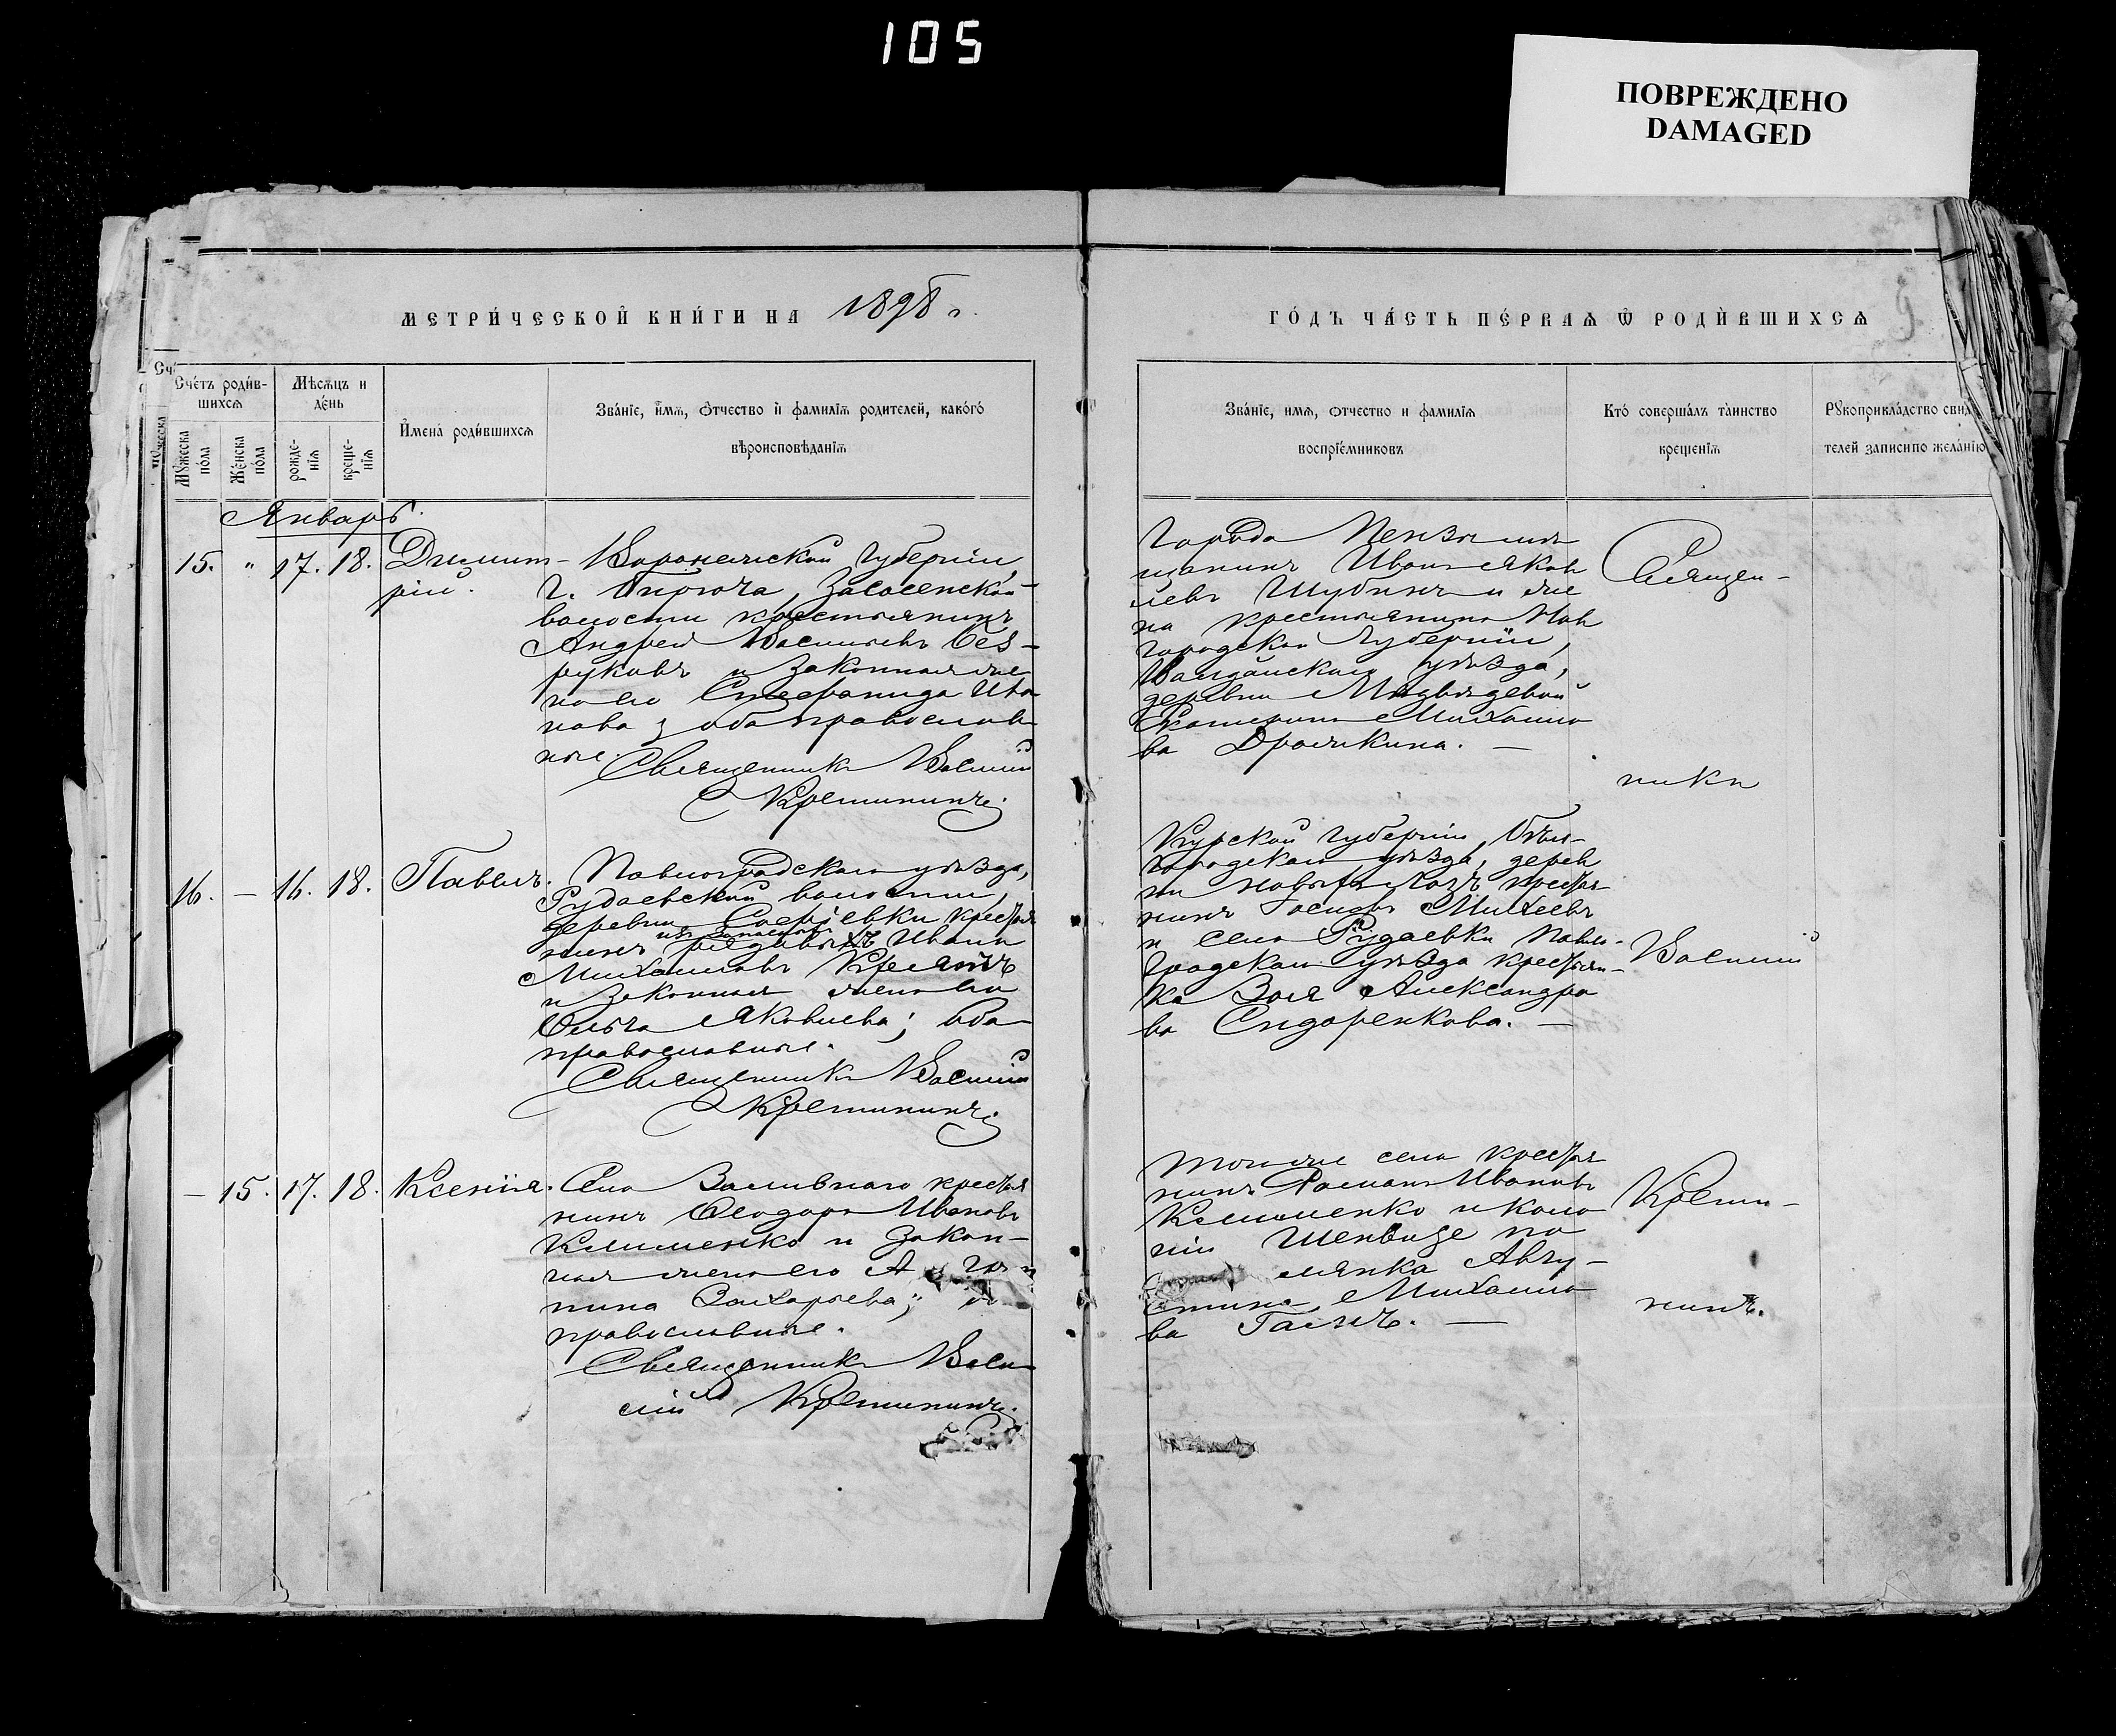 105
ПОВРЕЖДЕНО
DAMAGED
МЕТРИ́ЧЕСКОЙ КНИ́ГИ НА 1898 г.
ГО́ДЪ ЧА́СТЬ ПЕ́РВАѦ Ѿ РОДИ́ВШИХСѦ
Сче́тъ роди́в-
шихсѧ
Мꙋ́жеска по́ла
Же́нска по́ла
Мѣсѧцъ и
де́нь
рожде-
нїѧ
креще-
нїѧ
И҆мена̀ роди́вшихсѧ
Зва́нїе, и҆мѧ, ѻ҆тчество и҆ фамилїѧ родителей, како́гѡ
вѣроисповѣданїѧ
Зва́нїе, имѧ, ѻтчество и фамилїѧ
воспрїе́мниковъ
Кто́ соверша́лъ та́инство
креще́нїѧ
Рꙋкоприкла́дство свид
телей записи по жела́нїю
Январь.
15. " 17. 18. Димит-
рій.
Воронежской губерніи,
г. Бирюча, Засосенской
волости крестьянинъ
Андрей Васильевъ Без-
руковъ и законная же
на его Стефанида Ива
нова; оба православ
ные.
Священникъ Василій
Кременинъ.
Города Пензы мѣ
щанинъ Иванъ Яков
левъ Шубинъ и же
на крестьянина Нов
городской губерніи,
Валдайскаго уѣзда,
деревни Медвѣдевой
Екатерина Михайло
ва Дрожжина. —
Священ-
ника
16. — 16. 18. Павелъ.
Павлоградскаго уѣзда,
Рудаевской волости,
деревни Софіевки крестья
нинъ изъ запасныхъ рядовыхъ Иванъ
Михайловъ
и законная жена его
Ольга Яковлева; оба
православные.
Священникъ Василій
Кременинъ.
Курской губерніи, Бѣл-
городскаго уѣзда, дерев
ни крестья
нинъ Іосифъ Михеевъ
и села Рудаевки Павло-
градскаго уѣзда крестьян-
ка Зоя Александро
ва Сидоренкова. —
Василій
— 15. 17. 18. Ксенія.
Села Заливнаго крестья
нинъ Ѳеодоръ Ивановъ
Клименко и закон-
ная жена его
Захарьева;
православные.
Священникъ Васи
лій Кременинъ.
Того же села крестья
нинъ Романъ Ивановъ
Клименко и коло
ніи по
Авгу-
стина Михайло
ва —
Кремен-
нинъ.